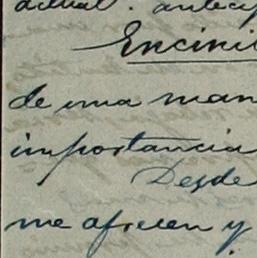 actual. antec
Encini
de una man
importancia
Desde
me ofrecen y